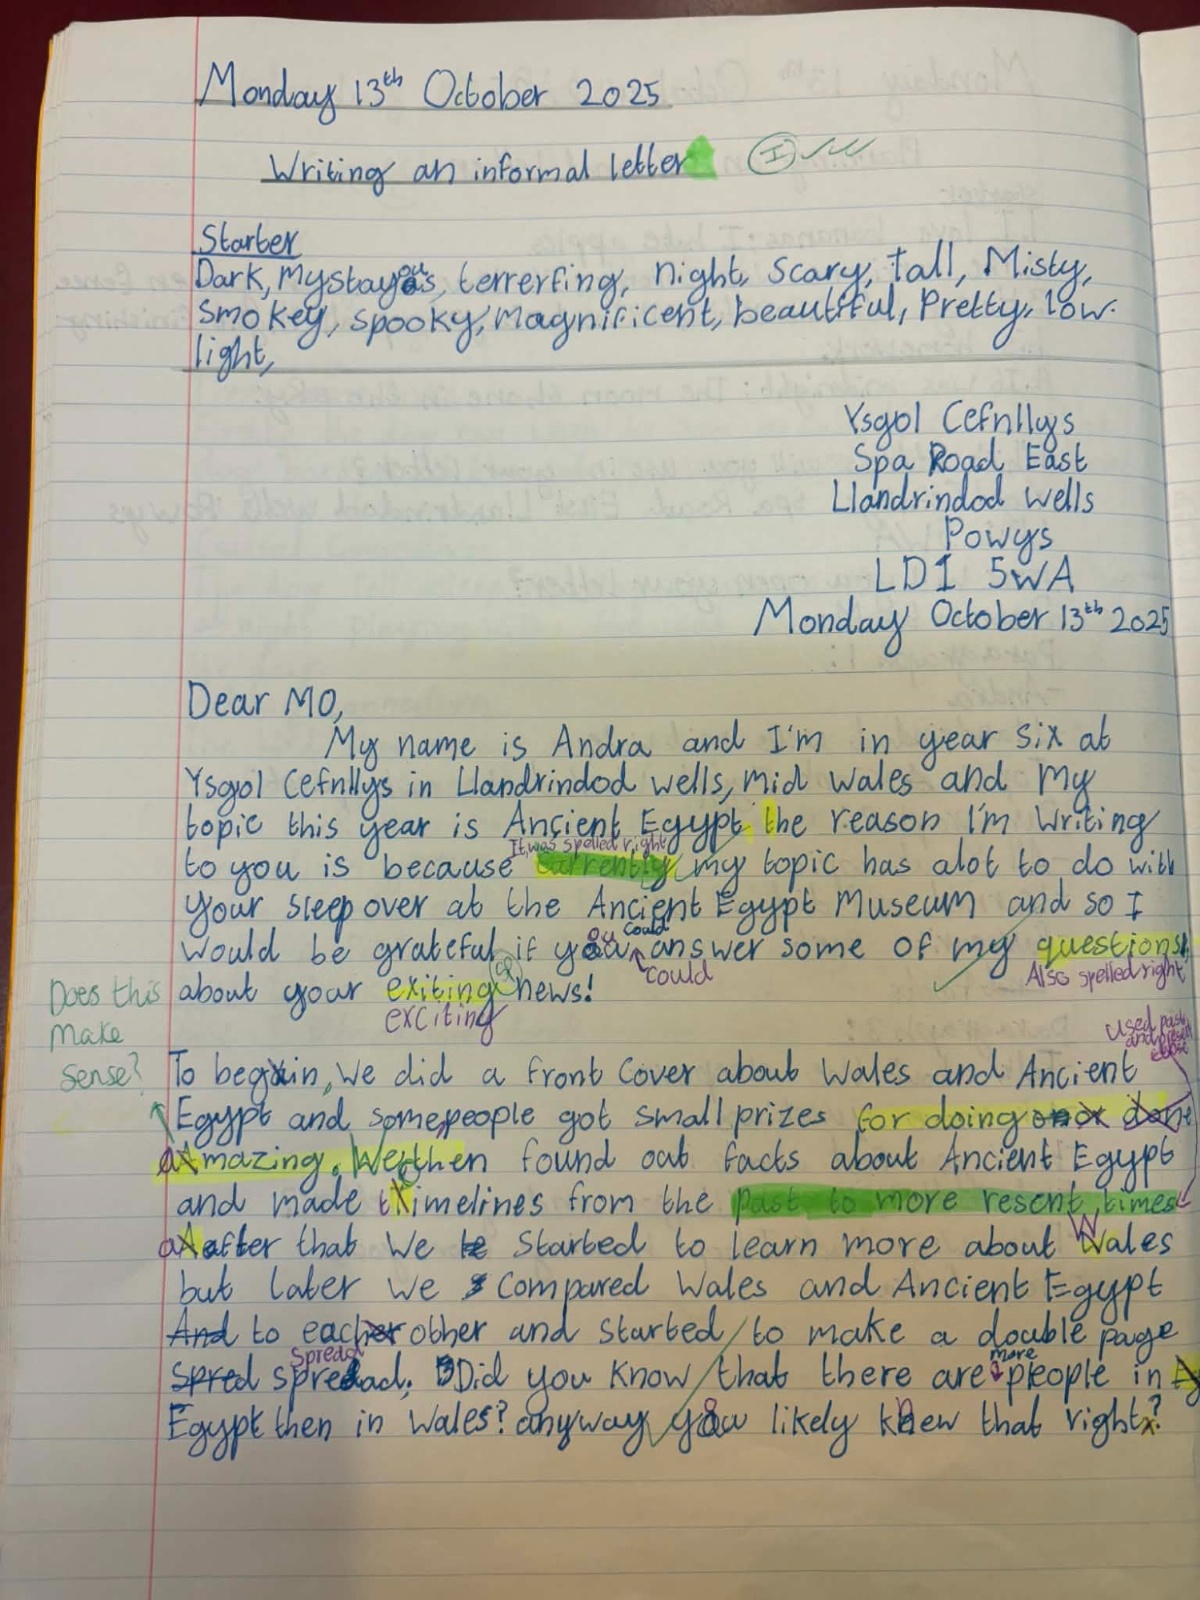 Monday 13th October 2025
Writing an informal letter
I
Starter
Dark, Mystayous, terrerfing, night, Scary, Tall, Misty,
Smokey, spooky, Magnificent, beautiful, Pretty, low-
light,
Ysgol Cefnllys
Spa Road East
Llandrindod wells
Powys
LD1 5WA
Monday October 13th 2025
Dear MO,
My name is Andra and I'm in year six at
Ysgol Cefnllys in Llandrindod wells, mid wales and my
topic this year is Ancient Egypt the reason I'm Writing
It was spelled right
to you is because currently my topic has alot to do with
your sleepover at the Ancient Egypt Museum and so I
could
would be grateful if you answer some of my questions
could
Also spelled right
about your exiting news!
exciting
Does this
make
sense?
Used past
and present
To begin, we did a front cover about Wales and Ancient
Egypt and some people got small prizes for doing done
amazing. We then found out facts about Ancient Egypt
and made timelines from the past to more resent times
after that we started to learn more about Wales
but later we compared Wales and Ancient Egypt
And to each other and started to make a double page
Spread
more
spred spread. Did you know that there are people in
Egypt then in wales? anyway you likely knew that right?